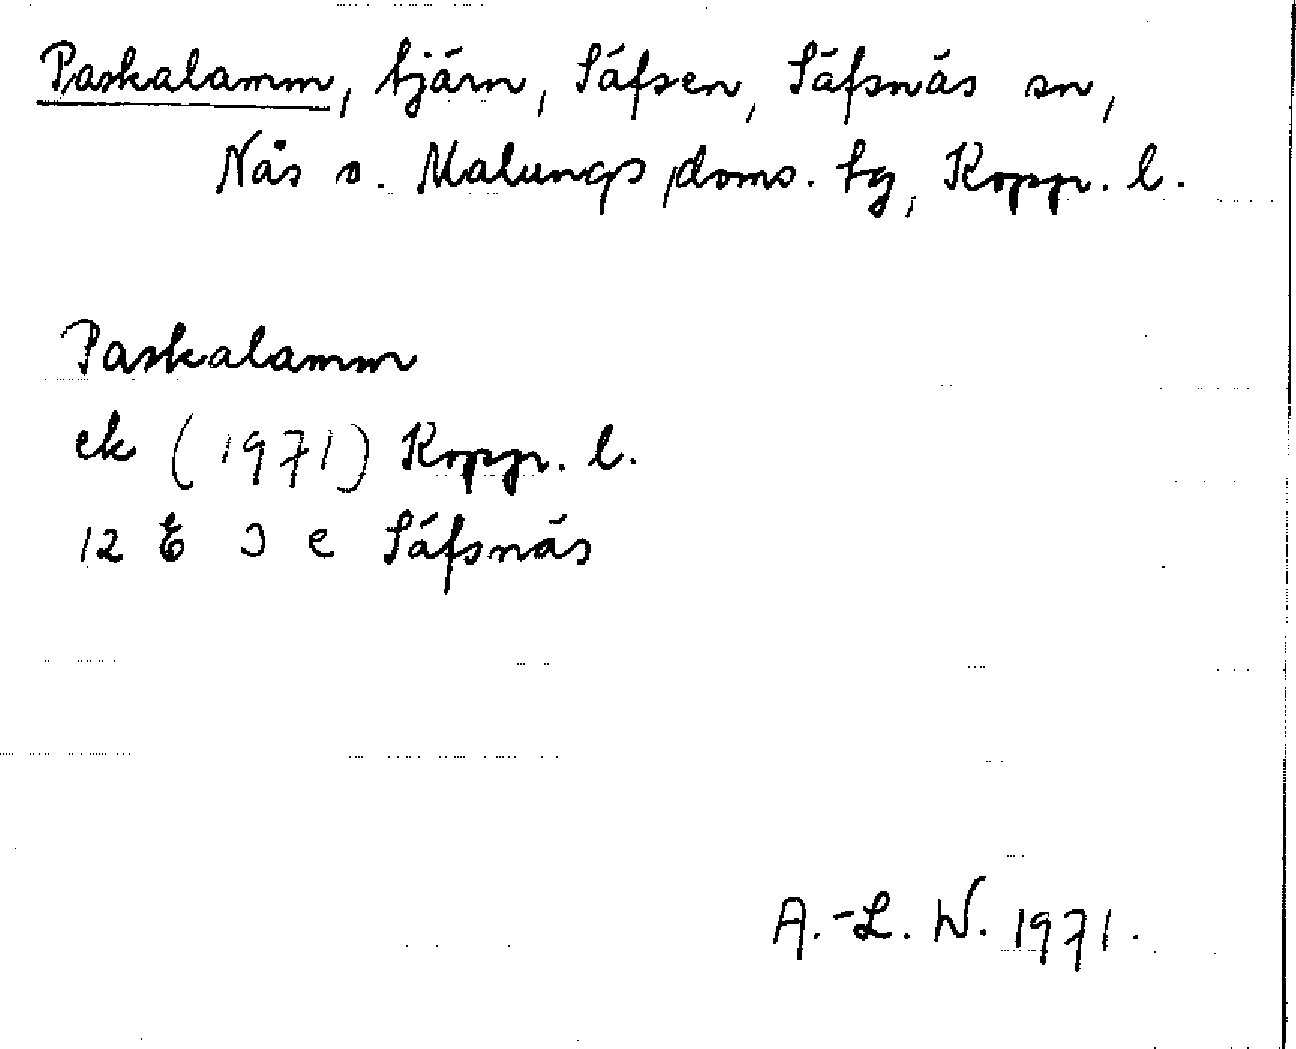 Paskalamm, tjärn, Säfsen, Säfsnäs sn,
Nås o. Malungs doms. tg, Kopp. l.
Paskalamm
ek (1971) Kopp. l.
12 E J e Säfsnäs
A.-L. W. 1971.